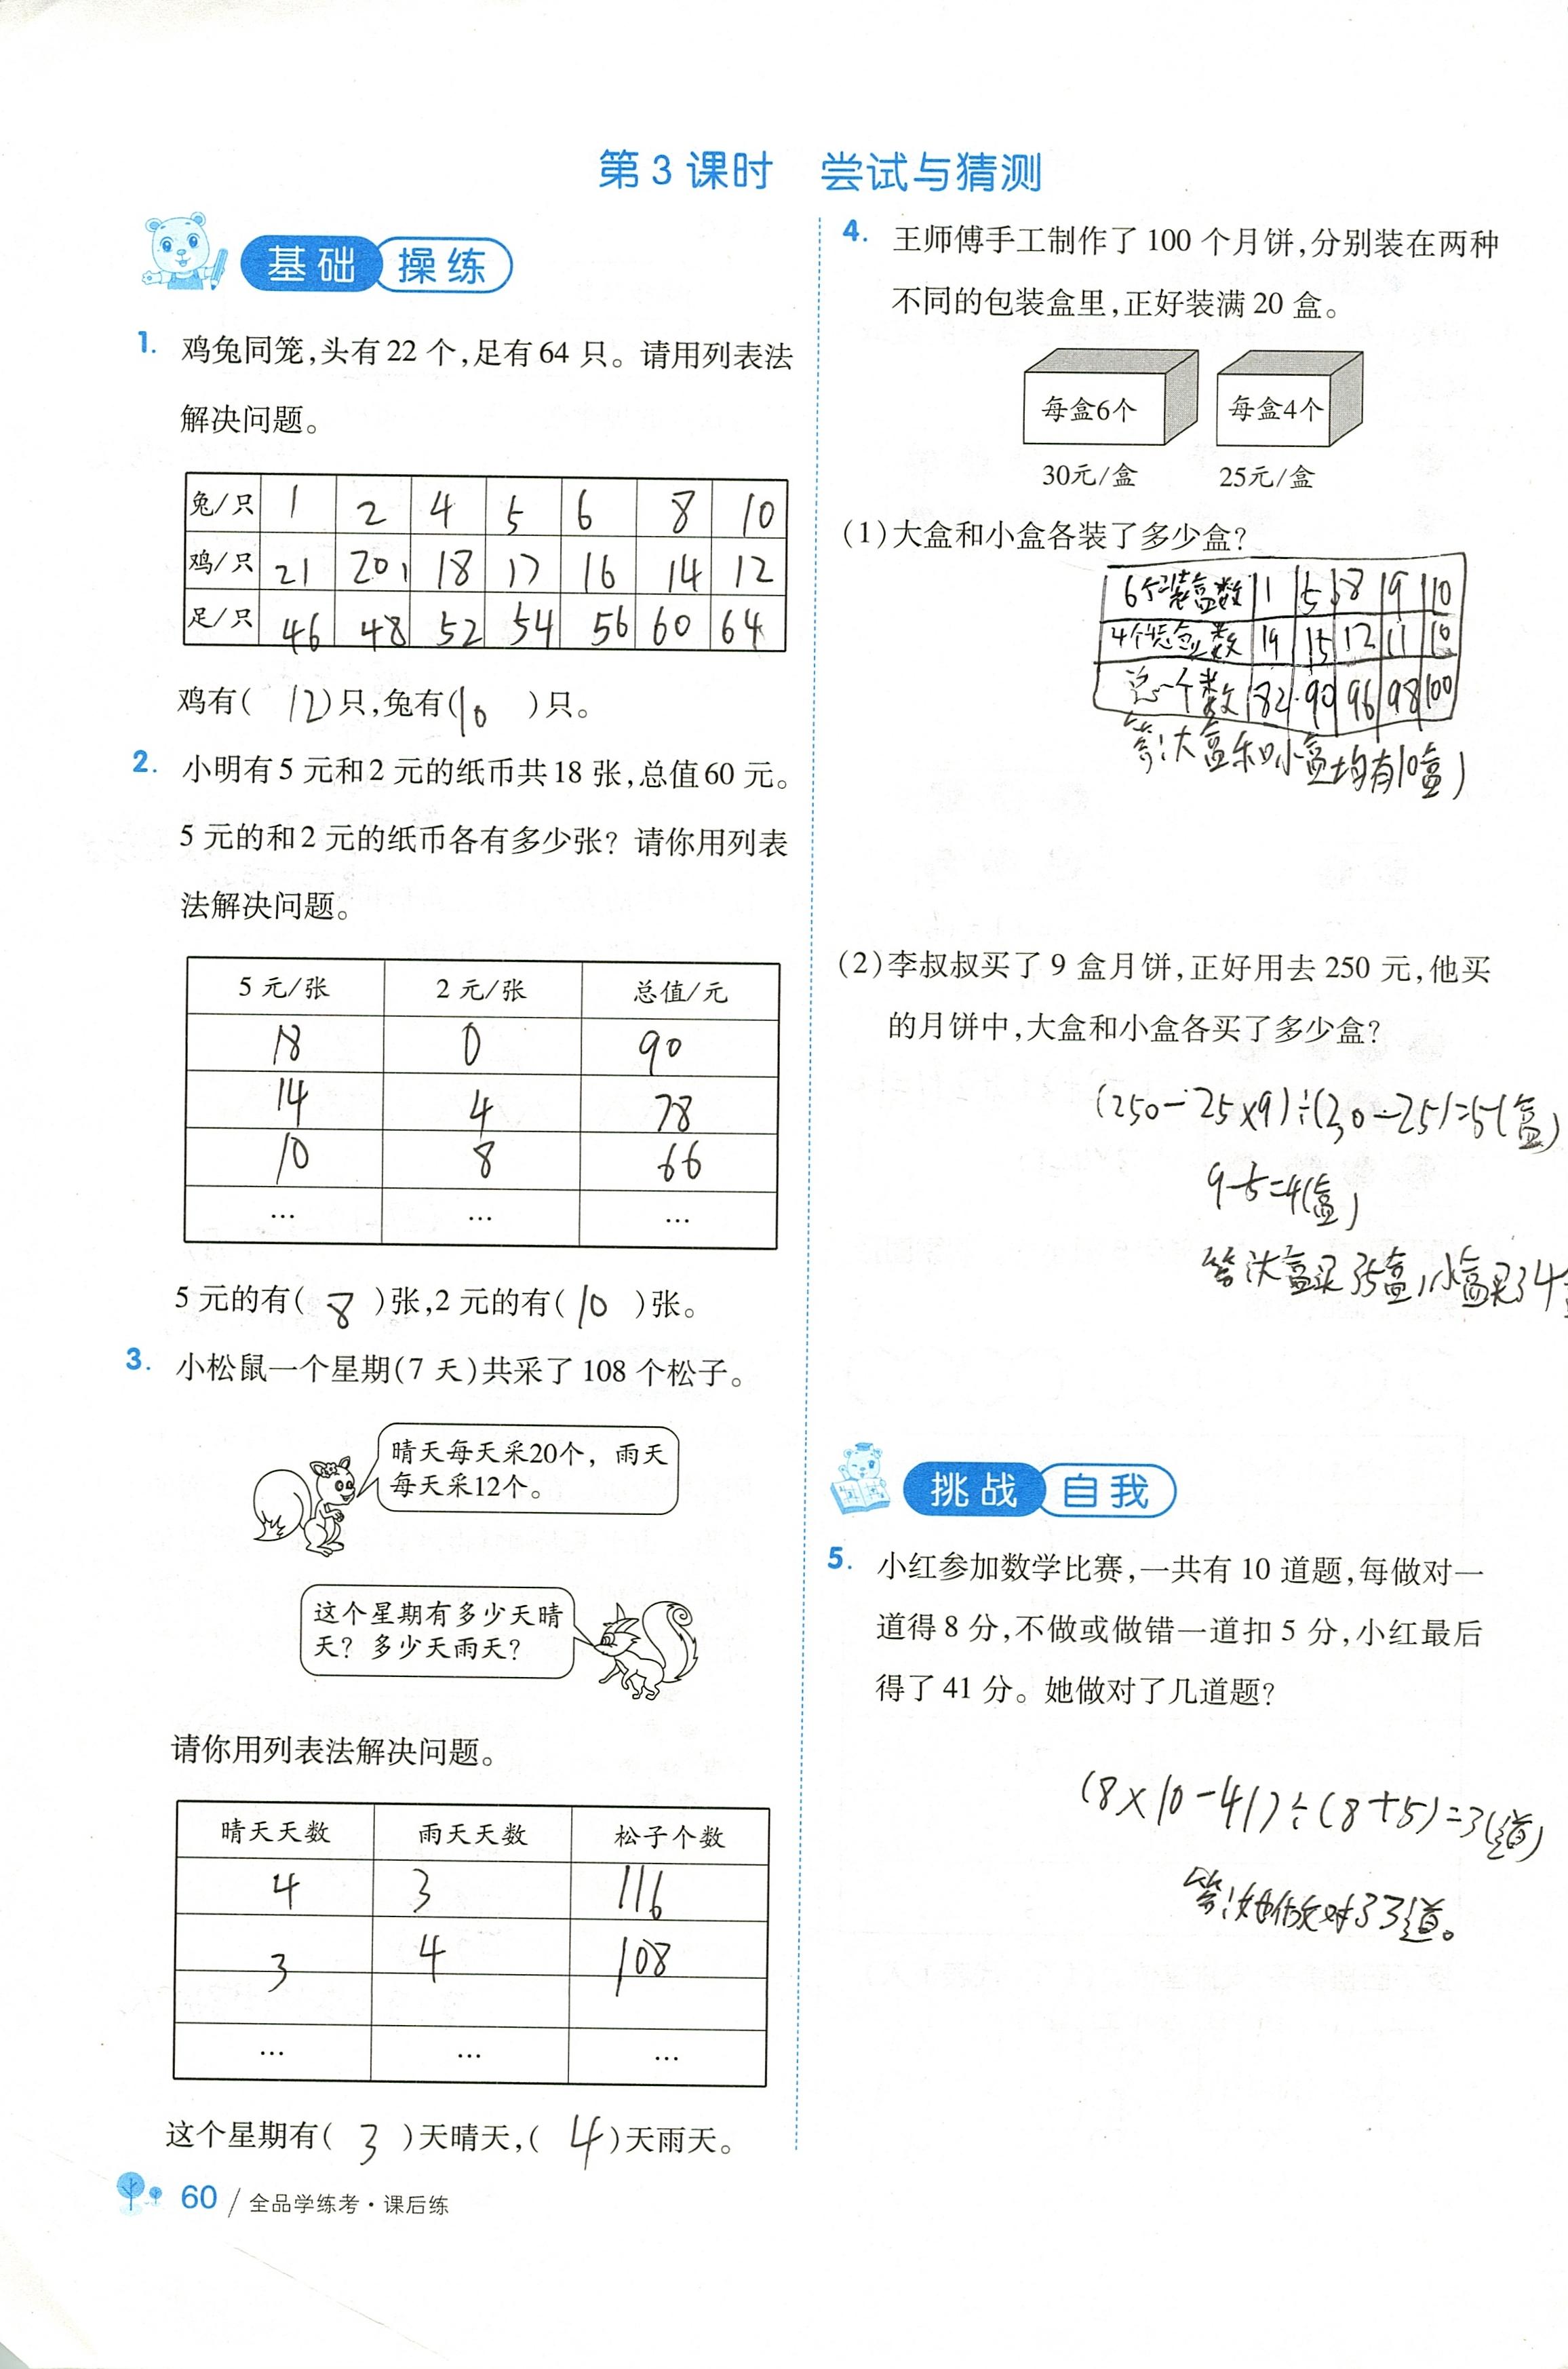 第3课时 尝试与猜测
基础 操练
1. 鸡兔同笼,头有22个,足有64只。请用列表法
解决问题。
兔/只 1 2 4 5 6 8 10
鸡/只 21 20 18 17 16 14 12
足/只 46 48 52 54 56 60 64
鸡有( 12 )只,兔有( 10 )只。
2. 小明有5元和2元的纸币共18张,总值60元。
5元的和2元的纸币各有多少张? 请你用列表
法解决问题。
5元/张 2元/张 总值/元
18 0 90
14 4 78
10 8 66
… … …
5元的有( 8 )张,2元的有( 10 )张。
3. 小松鼠一个星期(7天)共采了108个松子。
晴天每天采20个，雨天
每天采12个。
这个星期有多少天晴
天？多少天雨天？
请你用列表法解决问题。
晴天天数 雨天天数 松子个数
4 3 116
3 4 108
… … …
这个星期有( 3 )天晴天,( 4 )天雨天。
60 / 全品学练考·课后练
4. 王师傅手工制作了100个月饼,分别装在两种
不同的包装盒里,正好装满20盒。
每盒6个 每盒4个
30元/盒 25元/盒
(1)大盒和小盒各装了多少盒?
6个装盒数 1 5 8 9 10
4个装盒数 19 15 12 11 10
总个数 82 90 96 98 100
答:大盒和小盒均有10盒)
(2)李叔叔买了9盒月饼,正好用去250元,他买
的月饼中,大盒和小盒各买了多少盒?
(250-25×9)÷(30-25)=5(盒)
9-5=4(盒)
答:大盒买了5盒,小盒买了4
挑战 自我
5. 小红参加数学比赛,一共有10道题,每做对一
道得8分,不做或做错一道扣5分,小红最后
得了41分。她做对了几道题?
(8×10-41)÷(8+5)=3(道)
答:她做对了3道。